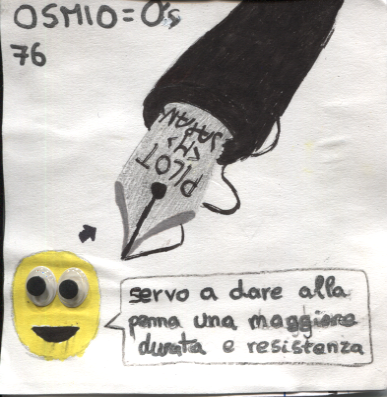 OSMIO = O's
76
PILOT
JAPAN
servo a dare alla
penna una maggiore
durata e resistenza